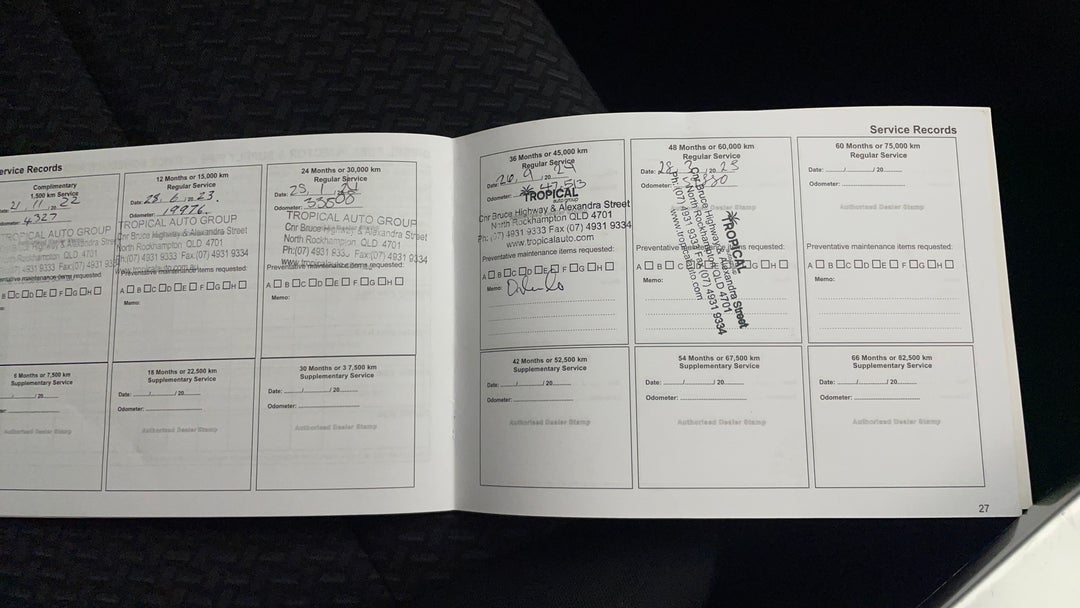 ervice Records
Complimentary
1,500 km Service
21 / 11 / 20 22
4327
TROPICAL AUTO GROUP
Highway & Alexandra Stre
North Rockhampton QLD 4701
4931 9333 Fax:(07) 4931 9334
entative maintenance items requested:
B C D E F G H
6 Months or 7,500 km
Supplementary Service
/ / 20
Authorised Dealer Stamp
12 Months or 15,000 km
Regular Service
Date: 28 / 6 / 20 23.
Odometer: 19976.
TROPICAL AUTO GROUP
Cnr Bruce Highway & Alexandra Street
North Rockhampton QLD 4701
Ph:(07) 4931 9333 Fax:(07) 4931 9334
items requested:
A B C D E F G H
Memo:
18 Months or 22,500 km
Supplementary Service
Date: / / 20
Odometer:
Authorised Dealer Stamp
24 Months or 30,000 km
Regular Service
Date: 25 / 1 / 20 24
Odometer:
TROPICAL AUTO GROUP
Cnr Bruce Highway & Alexandra Street
North Rockhampton QLD 4701
Ph:(07) 4931 9333 Fax:(07) 4931 9334
www.tropicalauto.com
Preventative maintenance items requested:
A B C D E F G H
Memo:
30 Months or 3 7,500 km
Supplementary Service
Date: / / 20
Odometer:
Authorised Dealer Stamp
Service Records
36 Months or 45,000 km
Regular Service
Date: 26 / 9 / 20 24
Odometer: 47,513
TROPICAL
autogroup
Cnr Bruce Highway & Alexandra Street
North Rockhampton QLD 4701
Ph: (07) 4931 9333 Fax (07) 4931 9334
www.tropicalauto.com
Preventative maintenance items requested:
A B C D E F G H
Memo:
42 Months or 52,500 km
Supplementary Service
Date: / / 20
Odometer:
Authorised Dealer Stamp
48 Months or 60,000 km
Regular Service
Date: 28 / / 20 25
Odometer:
Dealer Stamp
TROPICAL
Cnr Bruce Highway & Alexandra Street
North Rockhampton QLD 4701
Ph: (07) 4931 9333 Fax (07) 4931 9334
www.tropicalauto.com
Preventative maintenance items requested:
A B C G H
Memo:
54 Months or 67,500 km
Supplementary Service
Date: / / 20
Odometer:
Authorised Dealer Stamp
60 Months or 75,000 km
Regular Service
Date: / / 20
Odometer:
Authorised Dealer Stamp
Preventative maintenance items requested:
A B C D E F G H
Memo:
66 Months or 82,500 km
Supplementary Service
Date: / / 20
Odometer:
Authorised Dealer Stamp
27